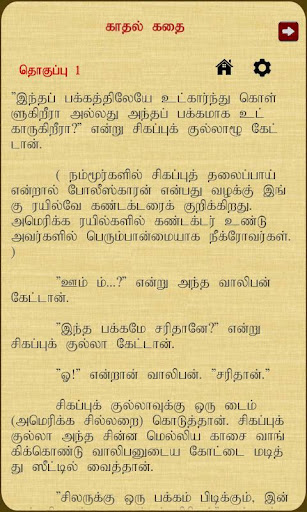 காதல் கதை
தொகுப்பு 1
"இந்தப் பக்கத்திலேயே உட்கார்ந்து கொள்
ளுகிறீரா அல்லது அந்தப் பக்கமாக உட்
காருகிறீரா?" என்று சிகப்புக் குல்லாமூ கேட்
டான்.
( நம்மூர்களில் சிகப்புத் தலைப்பாய்
என்றால் போலீஸ்காரன் என்பது வழக்கு இங்
கு ரயில்வே கண்டக்டரைக் குறிக்கிறது.
அமெரிக்க ரயில்களில் கண்டக்டர் உண்டு
அவர்களில் பெரும்பான்மையாக நீக்ரோவர்கள்.
)
"ஊம் ம்...?" என்று அந்த வாலிபன்
கேட்டான்.
"இந்த பக்கமே சரிதானே?" என்று
சிகப்புக் குல்லா கேட்டான்.
"ஓ!" என்றான் வாலிபன். "சரிதான்."
சிகப்புக் குல்லாவுக்கு ஒரு டைம்
(அமெரிக்க சில்லறை) கொடுத்தான். சிகப்புக்
குல்லா அந்த சின்ன மெல்லிய காசை வாங்
கிக்கொண்டு வாலிபனுடைய கோட்டை மடித்
து ஸீட்டில் வைத்தான்.
"சிலருக்கு ஒரு பக்கம் பிடிக்கும், இன்